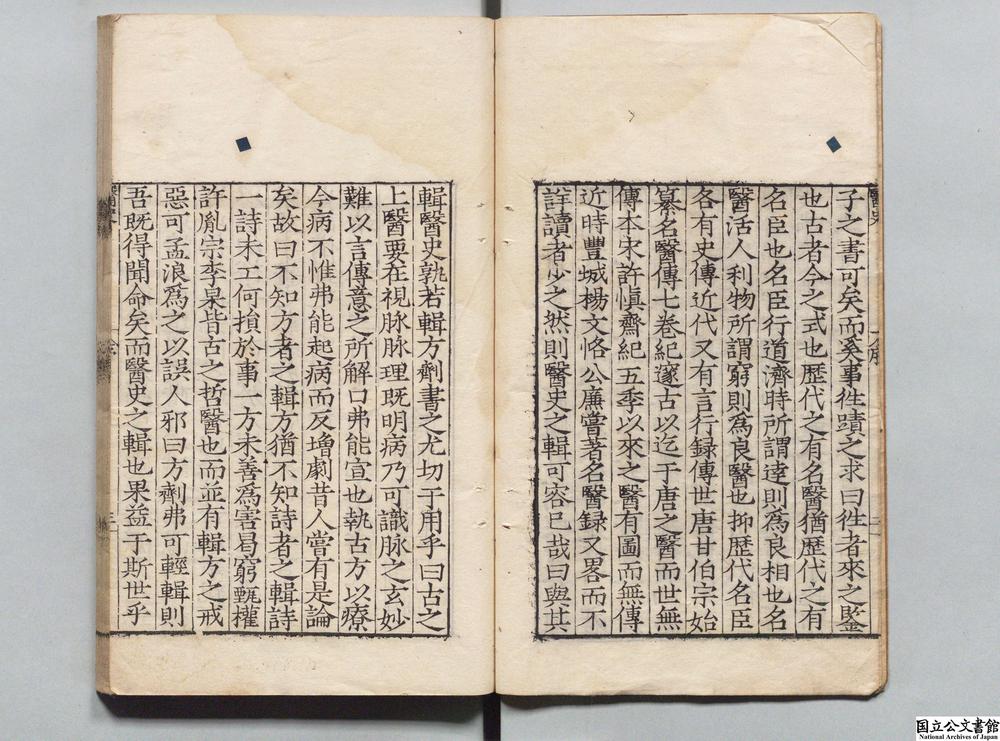 子之書可矣而奚事徃蹟之求曰徃者來之鑒
也古者今之式也歴代之有名醫猶歴代之有
名臣也名臣行道濟時所謂達則爲良相也名
醫活人利物所謂窮則爲良醫也抑歴代名臣
各有史傳近代又有言行録傳世唐甘伯宗始
纂名醫傳七卷紀邃古以迄于唐之醫而世無
傳本宋許慎齋紀五季以來之醫有圖而無傳
近時豐城楊文恪公廉嘗著名醫録又畧而不
詳讀者少之然則醫史之輯可容已哉曰與其
輯醫史孰若輯方劑書之尤切于用乎曰古之
上醫要在視脉脉理既明病乃可識脉之玄妙
難以言傳意之所解口弗能宣也執古方以療
今病不惟弗能起病而反増劇昔人嘗有是論
矣故曰不知方者之輯方猶不知詩者之輯詩
一詩未工何損於事一方未善爲害曷窮甄權
許胤宗李杲皆古之哲醫也而並有輯方之戒
惡可孟浪爲之以誤人邪曰方劑弗可輕輯則
吾既得聞命矣而醫史之輯也果益于斯世乎
国立公文書館
National Archives of Japan